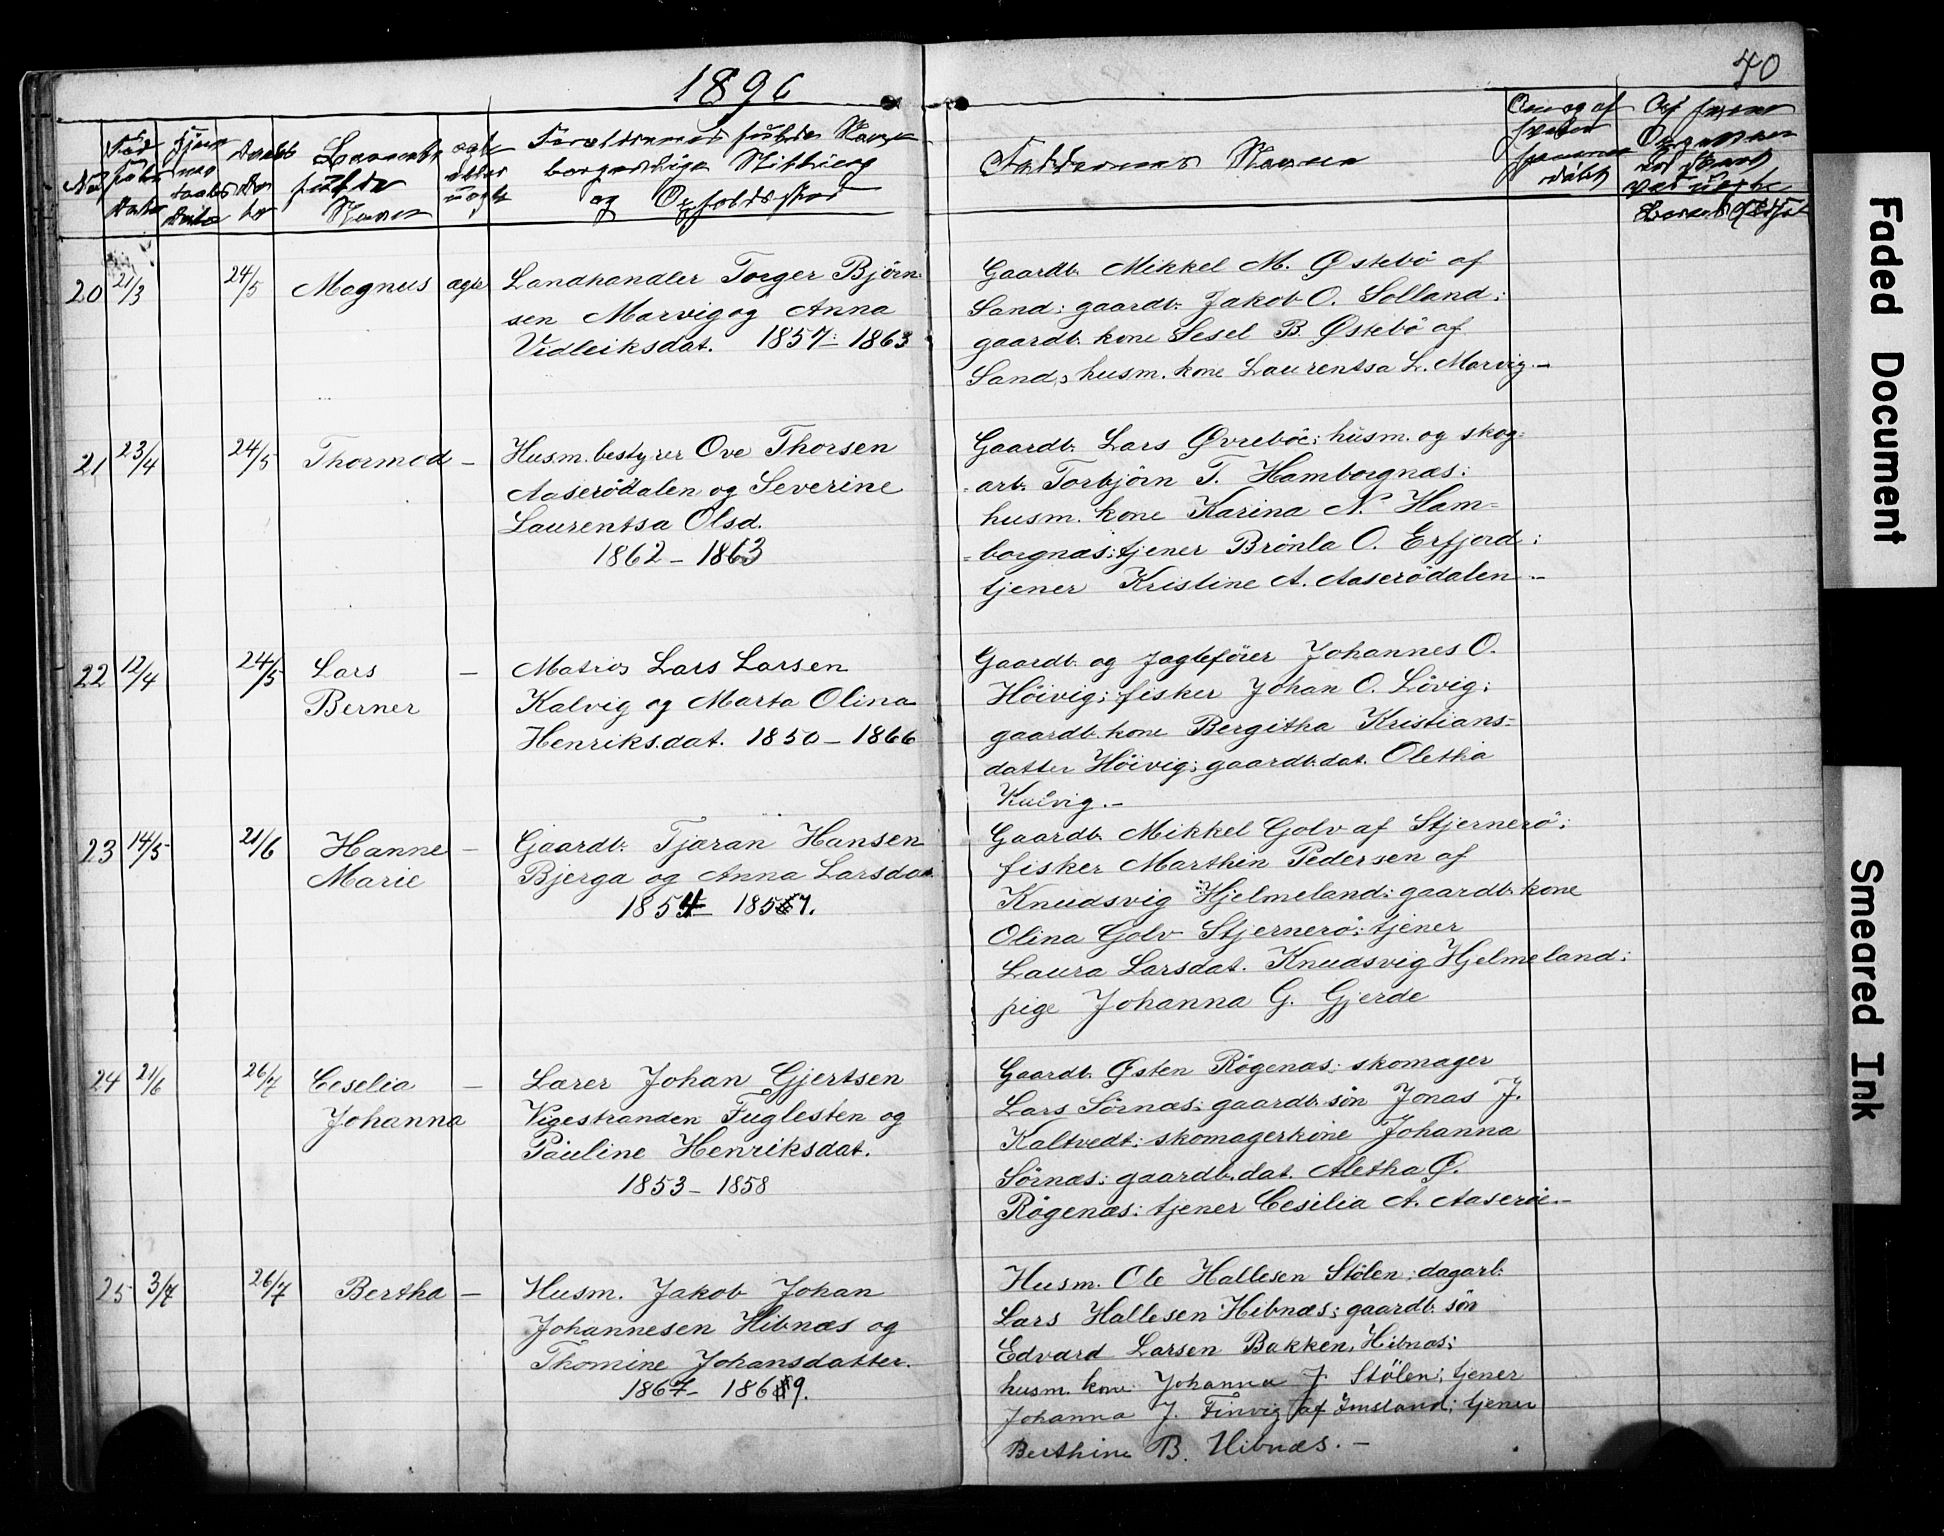 1896
40
No
Barnets
fulde
Navn
ægte
eller
uægte
Forældrenes fulde Navne
borgerlige Stilling
og Opholdssted
Faddernes Navne
20 21/3 24/5 Magnus ægte Landhandler Torger Björn-
sen Marvig og Anna
Vidleiksdat. 1857- 1863
Gaardb. Mikkel M. Østebö af
Sand; gaardb. Jakob O. Solland;
gaardb. kone Sesel B. Østebö af
Sand; husm. kone Laurentsa L. Marvig.-
21 23/4 24/5 Thormod - Husm. bestyrer Ove Thorsen
Aaserödalen og Severine
Laurentsa Olsd.
1862 - 1863
Gaardb. Lars Øvreböe; husm. og skog-
arb. Torbjörn T. Hamborgnæs;
husm. kone Karina N. Ham-
borgnæs; tjener Brönla O. Erfjord;
tjener Kristine A. Aaserödalen.-
22 12/4 24/5 Lars - Matros Lars Larsen
Berner Kalvig og Marta Olina
Henriksdat. 1850 - 1866
Gaardb. og Jagtefører Johannes O.
Höivig; fisker Johan O. Lövig;
gaardb. kone Bergitha Kristians-
datter Höivig; gaardb.dat. Oletha
23 14/5 21/6 Hanne - Gaardb. Tjæran Hansen
Marie Bjerga og Anna Larsdat.
1854 - 1857.
Gaardb. Mikkel Golv af Stjernerö;
fisker Marthin Pedersen af
Knudsvig Hjelmeland; gaardb. kone
Olina Golv Stjernerö; tjener
Laura Larsdat. Knudsvig Hjelmeland;
pige Johanna G. Gjerde
24 21/6 26/7 Ceselia - Lærer Johan Gjertsen
Johanna Vigestranden Fuglesten og
Pauline Henriksdat.
1853 - 1858
Gaardb. Østen Rögenæs; skomager
Lars Sörnæs; gaardb. sön Jonas J.
Kaltvedt; skomagerkone Johanna
Sörnæs; gaardb. dat. Aletha Ø.
Rögenæs; tjener Cesilia A. Aaseröe.-
25 3/7 26/7 Bertha - Husm. Jakob Johan
Johannesen Hibnæs og
Thomine Johansdatter.
1867 - 1869.
Husm. Ole Hallesen Stölen; dagarb.
Lars Hallesen Hibnæs; gaardb. sön
Edvard Larsen Bakken, Hibnæs;
husm. kone Johanna J. Stölen; tjener
Johanna J. Finvig af Imsland; tjener
Berthine B. Hibnæs.-
Faded Document
Smeared Ink